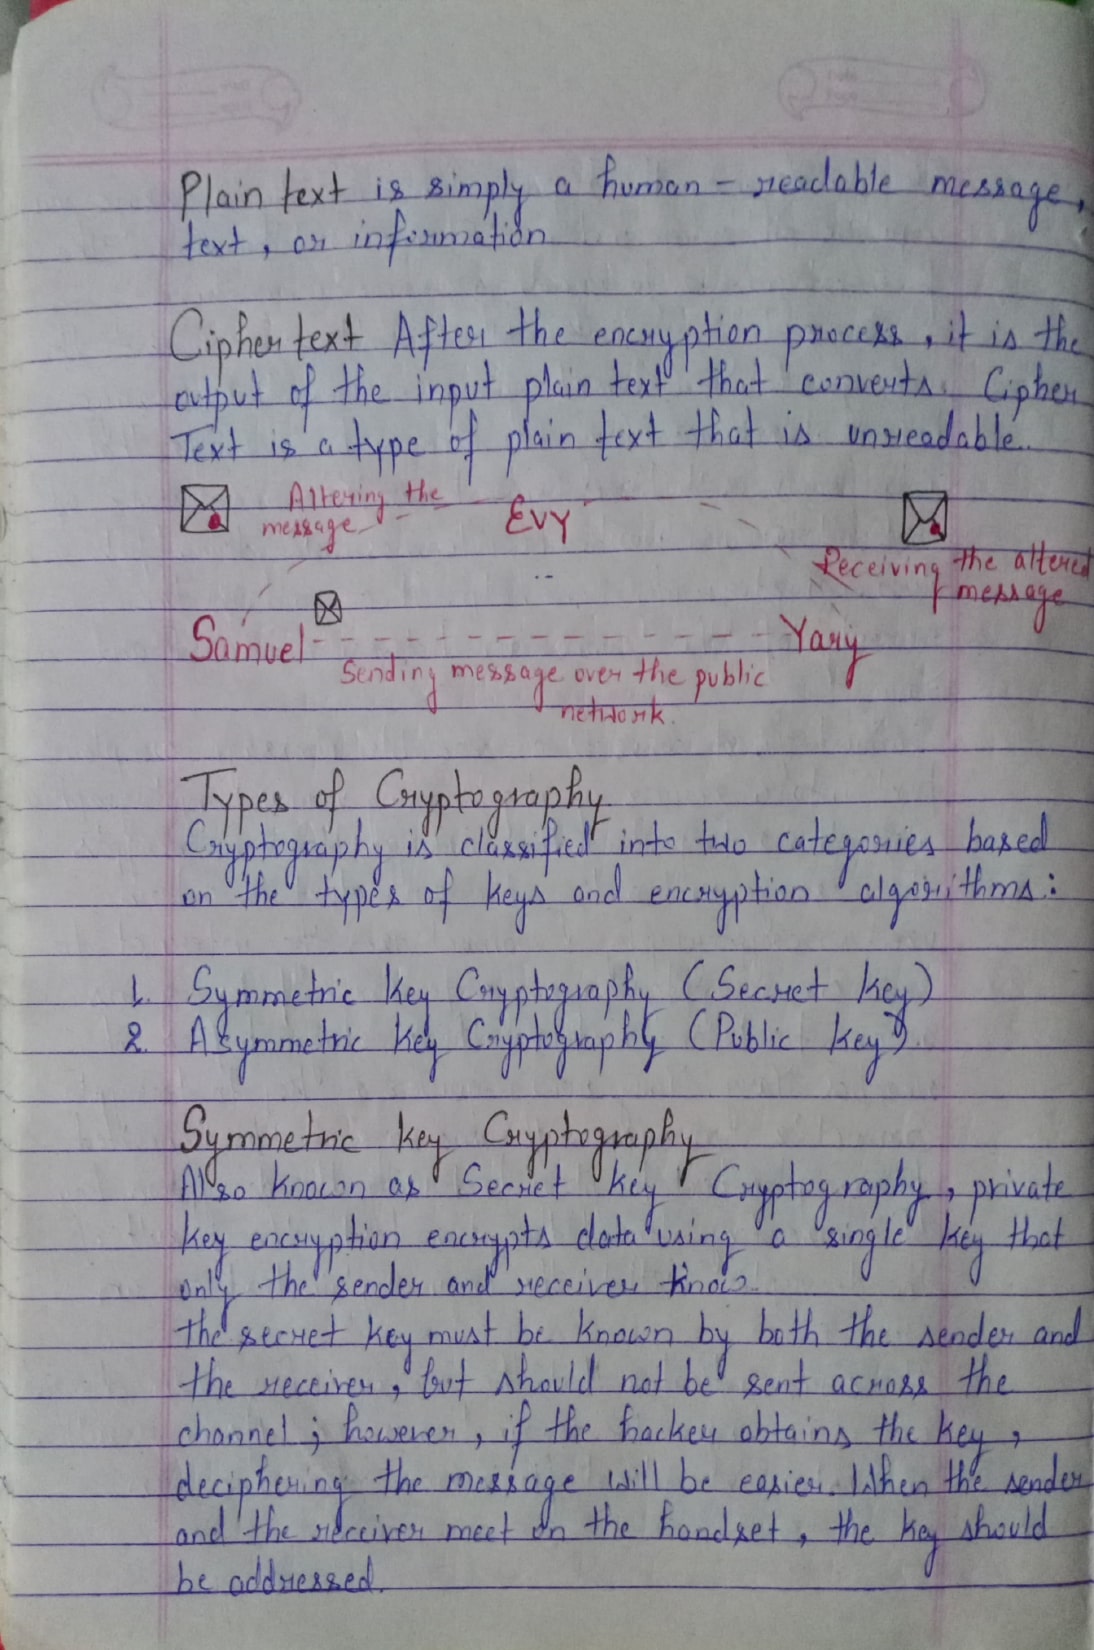 Plain text is simply a human - readable message,
text, or information
Cipher text After the encryption process, it is the
output of the input plain text that converts. Cipher
Text is a type of plain text that is unreadable.
Altering the
message
Evy
Receiving the altered
message
Samuel
Yary
Sending message over the public
network.
Types of Cryptography
Cryptography is classified into two categories based
on the types of keys and encryption algorithms:
1. Symmetric key Cryptography (Secret key)
2. Asymmetric key Cryptography (Public key)
Symmetric key Cryptography
Also known as Secret key Cryptography, private
key encryption encrypts data using a single key that
only the sender and receiver know.
the secret key must be known by both the sender and
the receiver, but should not be sent across the
channel; however, if the hacker obtains the key,
deciphering the message will be easier. When the sender
and the receiver meet on the handset, the key should
be addressed.